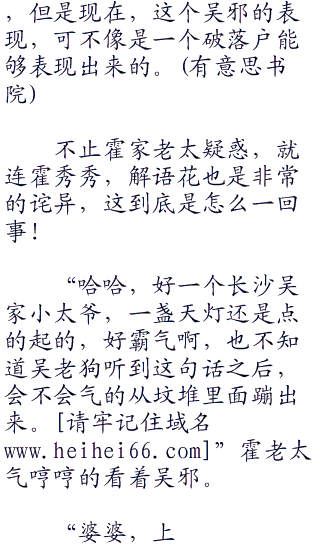 ，但是现在，这个吴邪的表
现，可不像是一个破落户能
够表现出来的。(有意思书
院)
不止霍家老太疑惑，就
连霍秀秀，解语花也是非常
的诧异，这到底是怎么一回
事！
“哈哈，好一个长沙吴
家小太爷，一盏天灯还是点
的起的，好霸气啊，也不知
道吴老狗听到这句话之后，
会不会气的从坟堆里面蹦出
来。[请牢记住域名
www.heihei66.com]”霍老太
气哼哼的看着吴邪。
“婆婆，上